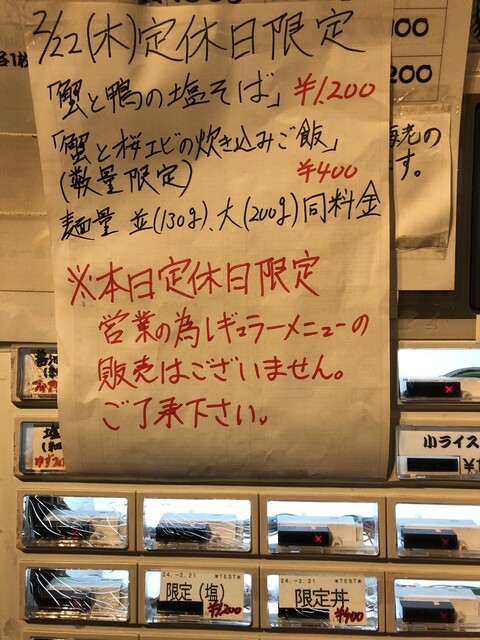 2/22(木)定休日限定
「蟹と鴨の塩そば」 ¥1,200
「蟹と桜エビの炊き込みご飯」
(数量限定) ¥400
麺量 並(130g)、大(200g)同料金
※本日定休日限定
営業の為レギュラーメニューの
販売はございません。
ご了承下さい。
100
200
海老の
す。
小ライス
24.-2.21 *TEST*
限定(塩)
¥1,200
24.-2.21 *TEST*
限定丼
¥400